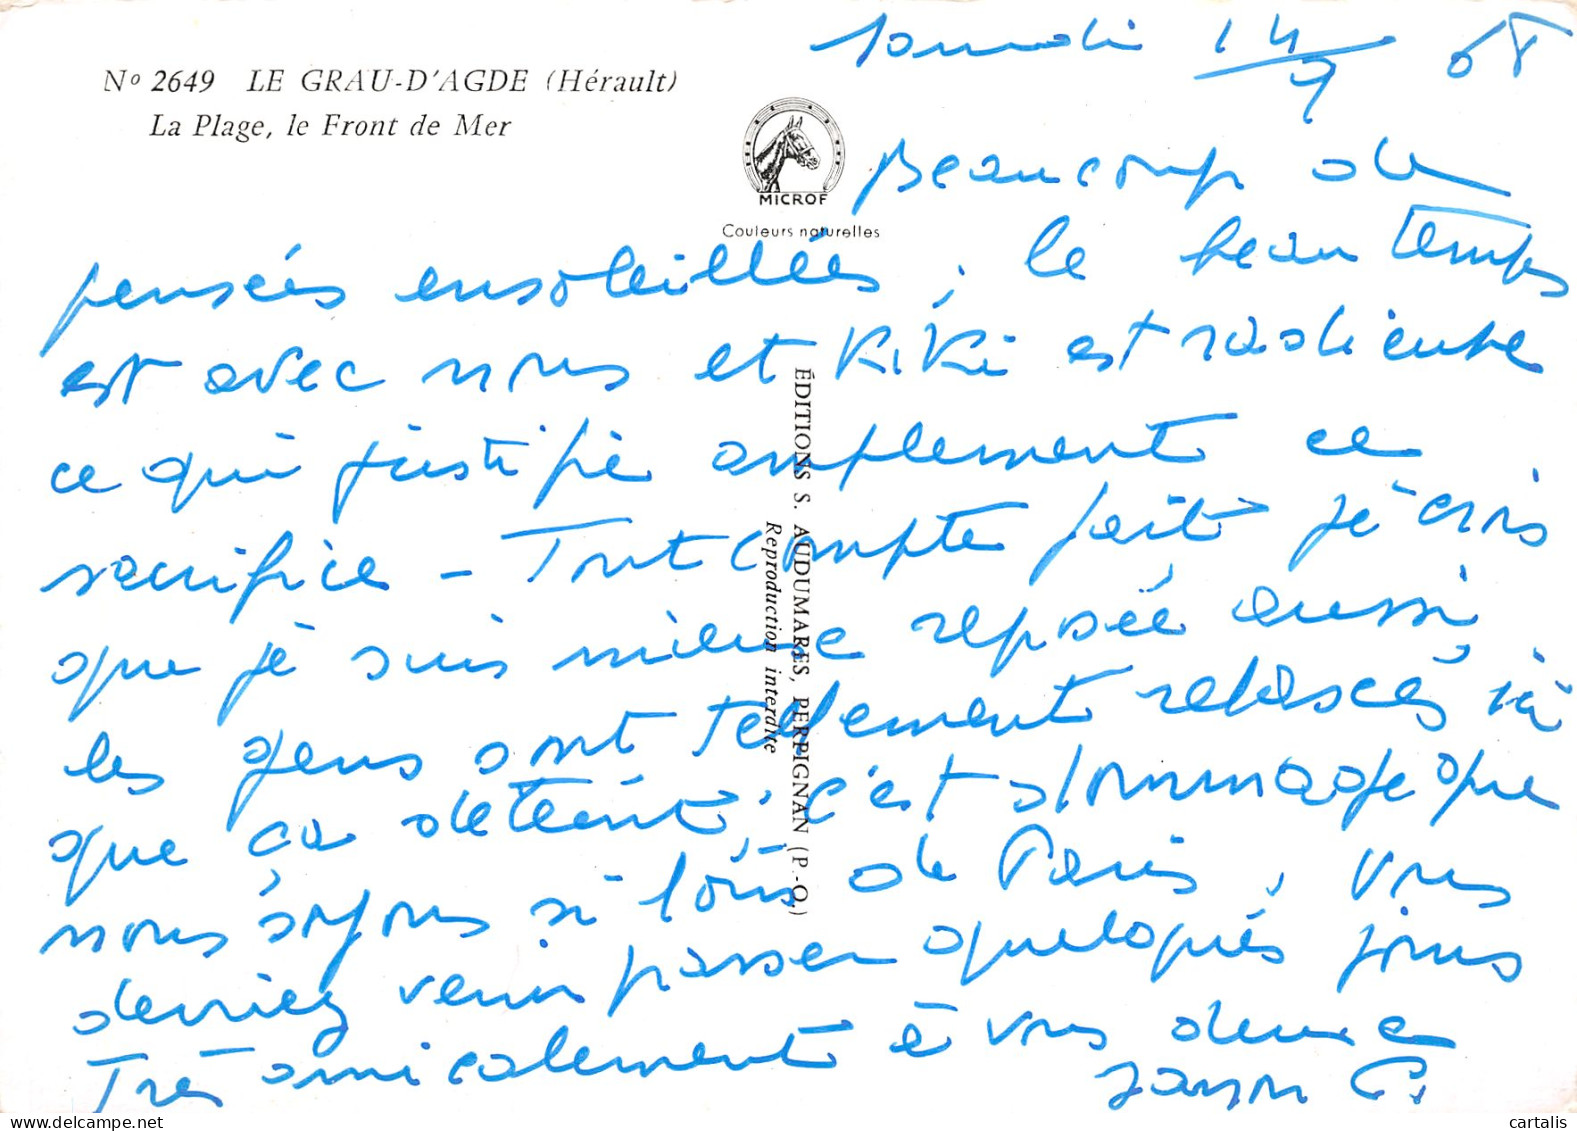 Samedi 14/9 68
Nº 2649 LE GRAU-D'AGDE (Hérault)
La Plage, le Front de Mer
MICROF
Couleurs naturelles
Beaucoup de
pensées ensoleillées, le beau temps
est avec nous et Kiki est radieuse
ce qui justifie amplement ce
sacrifice - Tout compte fait je crois
que je suis mieux reposée aussi
les gens sont tellement relaxés ici
que ça déteint, c'est dommage que
nous soyons si loin de Paris, vous
devriez venir passer quelques jours
Très amicalement à vous deux
ÉDITIONS S. AUDUMARES, PERPIGNAN (P.-O.)
Reproduction interdite
cartalis